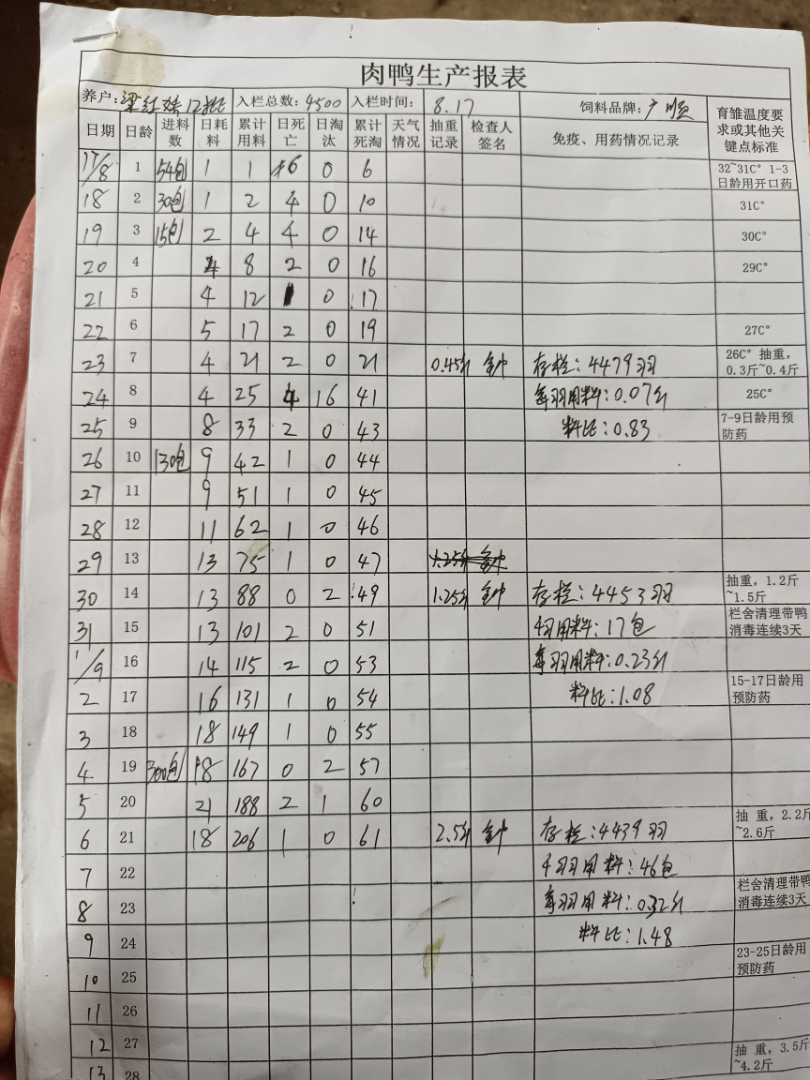 肉鸭生产报表
养户: 12批 入栏总数: 4500 入栏时间: 8.17 饲料品牌: 广 育雏温度要求或其他关键点标准
日期 日龄 进料数 日耗料 累计用料 日死亡 日淘汰 累计死淘 天气情况 抽重记录 检查人签名 免疫、用药情况记录
17/8 1 54包 1 1 6 0 6 32~31C° 1-3日龄用开口药
18 2 30包 1 2 4 0 10 31C°
19 3 15包 2 4 4 0 14 30C°
20 4 4 8 2 0 16 29C°
21 5 4 12 1 0 17
22 6 5 17 2 0 19 27C°
23 7 4 21 2 0 21 0.45斤 存栏:4479羽 26C° 抽重,0.3斤~0.4斤
24 8 4 25 4 16 41 每羽用料:0.07斤 25C°
25 9 8 33 2 0 43 料比:0.83 7-9日龄用预防药
26 10 130包 9 42 1 0 44
27 11 9 51 1 0 45
28 12 11 62 1 0 46
29 13 13 75 1 0 47 1.25斤
30 14 13 88 0 2 49 1.25斤 存栏:4453羽 抽重,1.2斤~1.5斤
31 15 13 101 2 0 51 用料:17包 栏舍清理带鸭消毒连续3天
1/9 16 14 115 2 0 53 每羽用料:0.23斤
2 17 16 131 1 0 54 料比:1.08 15-17日龄用预防药
3 18 18 149 1 0 55
4 19 300包 18 167 0 2 57
5 20 21 188 2 1 60
6 21 18 206 1 0 61 2.5斤 存栏:4439羽 抽重,2.2斤~2.6斤
7 22 羽用料:46包
8 23 每羽用料:0.32斤 栏舍清理带鸭消毒连续3天
9 24 料比:1.48
10 25 23-25日龄用预防药
11 26
12 27
13 28 抽重,3.5斤~4.2斤